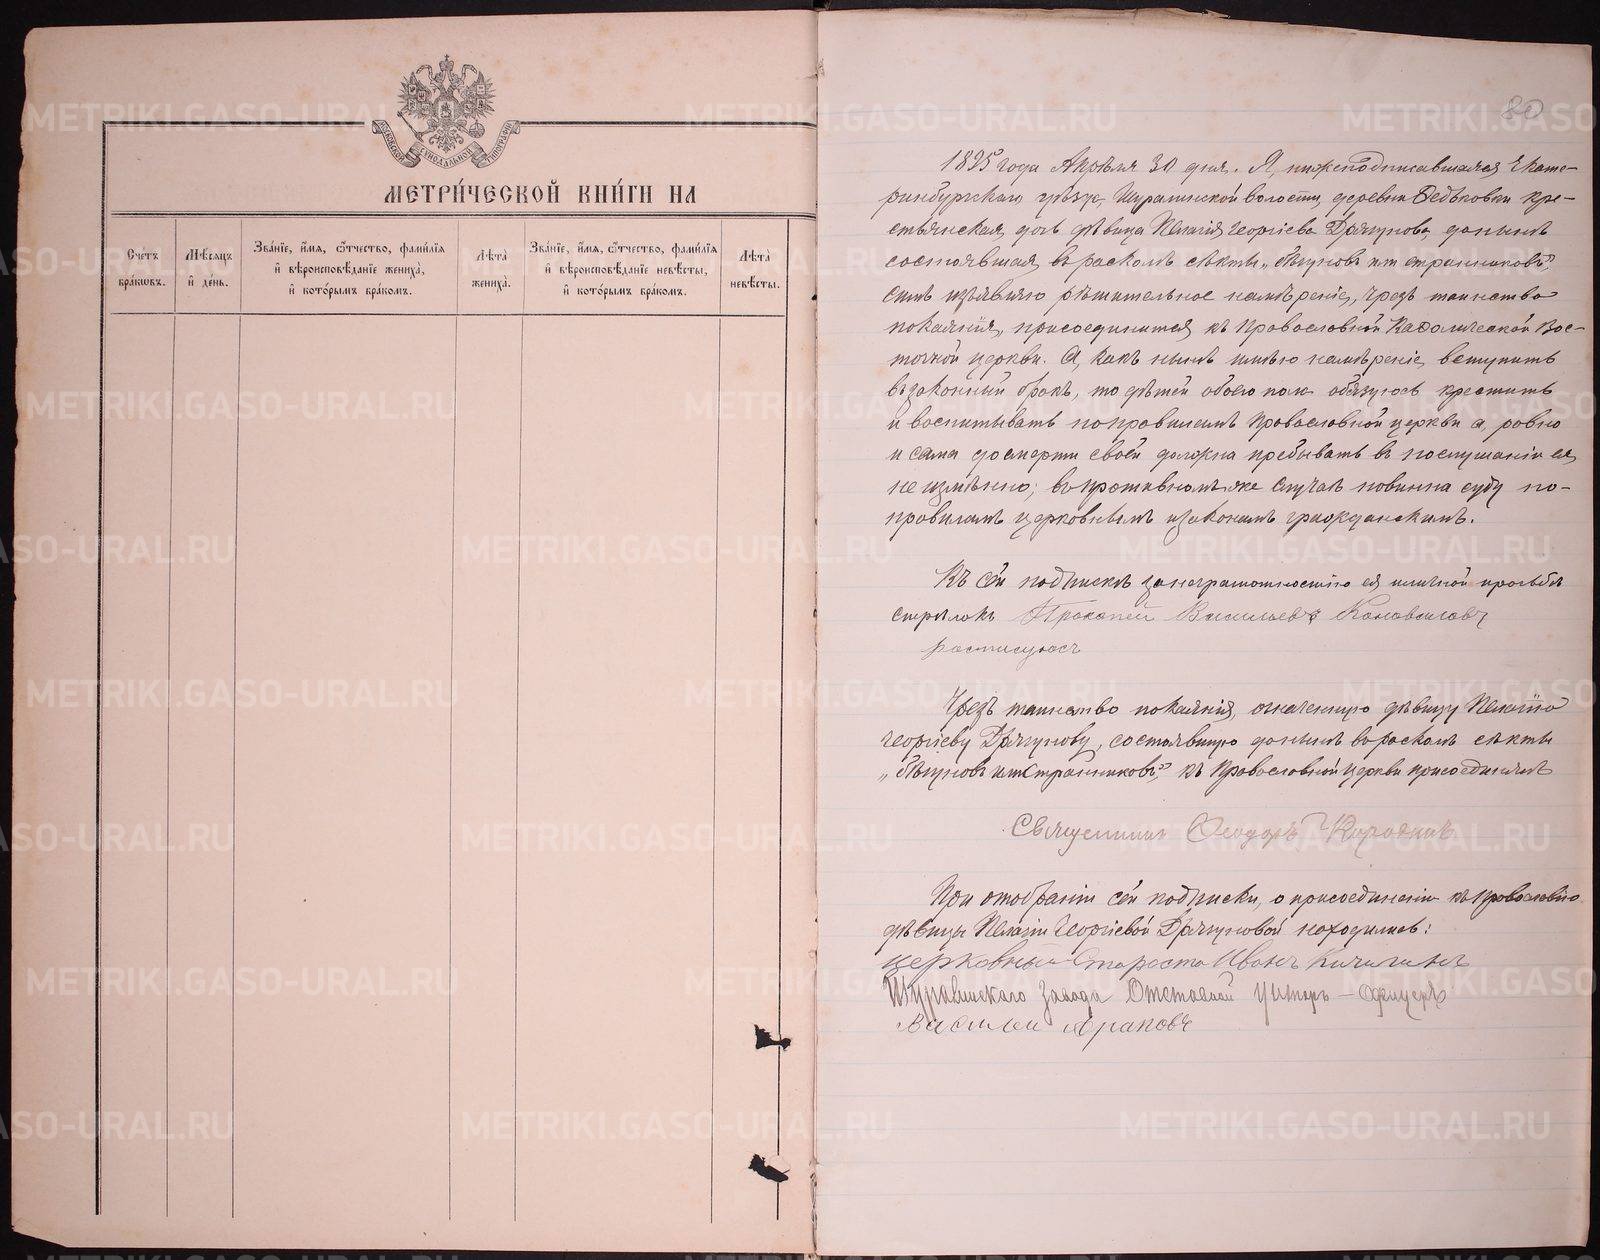 МОСКОВСКОЙ СѴНОДАЛЬНОЙ ТИПОГРАФІИ
МЕТРИ́ЧЕСКОЙ КНИ́ГИ НА
Сче́тъ бра́кѡвъ.
Мѣ́сяцъ и҆ де́нь.
Зва́нїе, и҆́мя, ѻ҆́тчество, фами́лїя и҆ вѣроисповѣ́данїе жениха̀, и҆ кото́рымъ бра́комъ.
Лѣ́та жениха̀.
Зва́нїе, и҆́мя, ѻ҆́тчество, фами́лїя и҆ вѣроисповѣ́данїе невѣ́сты, и҆ кото́рымъ бра́комъ.
Лѣ́та невѣ́сты.
80
1895 года Апрѣля 30 дня. Я, нижеподписавшаяся Екате-
ринбургскаго уѣзда, Шуралинской волости, деревни Федьковки кре-
стьянская дочь дѣвица Пелагія Георгіева Драгунова, донынѣ
состоявшая въ расколѣ секты „бѣгуновъ или странниковъ",
симъ изъявляю рѣшительное намѣреніе, чрезъ таинство
покаянія, присоединится къ Православной Каѳолической Вос-
точной церкви. А, какъ нынѣ имѣю намѣреніе вступить
въ законный бракъ, то дѣтей обоего пола обязуюсь крестить
и воспитывать по правиламъ Православной церкви а, ровно
и сама до смерти своей должна пребывать въ послушаніи ея
не измѣнно; въ противномъ же случаѣ повинна суду по-
правиламъ церковнымъ и законамъ гражданскимъ.
Къ сей подпискѣ за неграмотностію ея и личной просьбѣ
стрѣлокъ Прокопей Васильевъ Коноваловъ
росписуюсь
Чрезъ таинство покаянія, означенную дѣвицу Пелагію
Георгіеву Драгунову, состоявшую донынѣ въ расколѣ секты
„бѣгуновъ или странниковъ", къ Православной церкви присоединилъ
Священникъ Ѳеодоръ
При отобраніи сей подписки, о присоединеніи къ православію
дѣвицы Пелагіи Георгіевой Драгуновой находились:
церковный Староста Иванъ Кичигинъ
Шуралинскаго завода Отставной Унтеръ-офицеръ
Василей Араповъ
METRIKI.GASO-URAL.RU